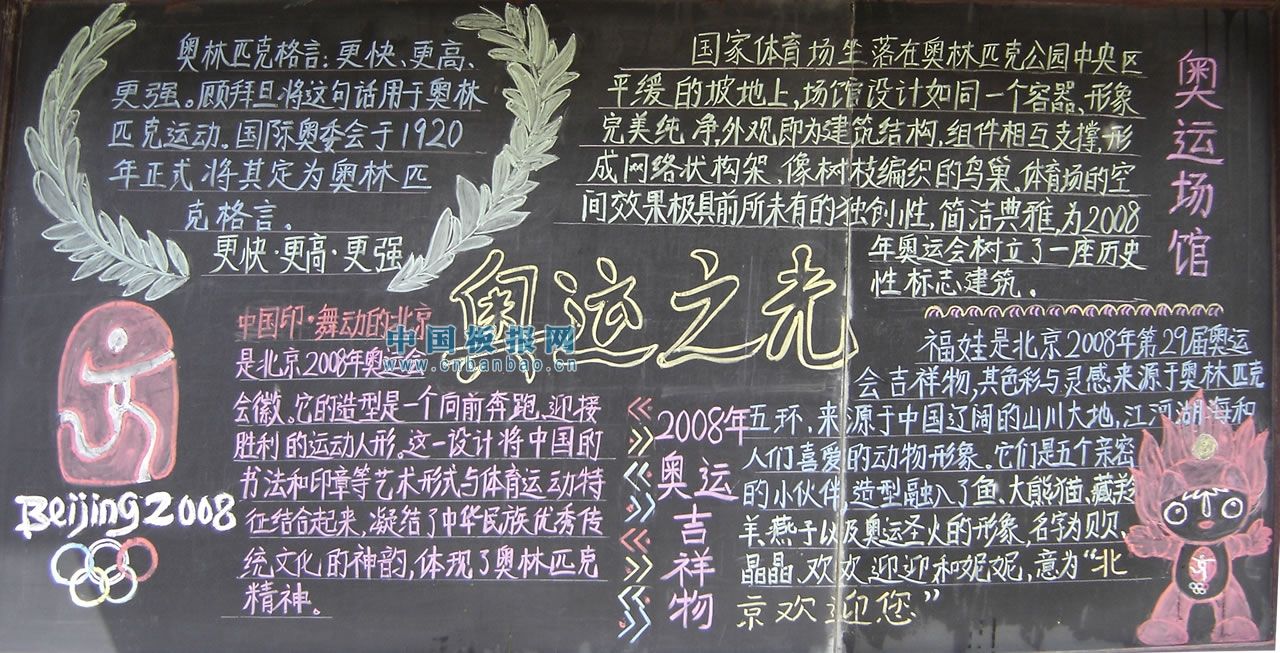 奥林匹克格言:更快、更高、
更强。顾拜旦将这句话用于奥林
匹克运动。国际奥委会于1920
年正式将其定为奥林匹
克格言。
更快·更高·更强
国家体育场坐落在奥林匹克公园中央区
平缓的坡地上,场馆设计如同一个容器,形象
完美纯净,外观即为建筑结构,组件相互支撑,形
成网络状构架,像树枝编织的鸟巢。体育场的空
间效果极具前所未有的独创性,简洁典雅,为2008
年奥运会树立了一座历史
性标志建筑。
奥运场馆
奥运之光
中国板报网
www.cnbanbao.cn
中国印·舞动的北京
是北京2008年奥运会
会徽。它的造型是一个向前奔跑,迎接
胜利的运动人形。这一设计将中国的
书法和印章等艺术形式与体育运动特
征结合起来,凝结了中华民族优秀传
统文化的神韵,体现了奥林匹克
精神。
Beijing2008
2008年
奥运
吉
祥
物
福娃是北京2008年第29届奥运
会吉祥物,其色彩与灵感来源于奥林匹克
五环,来源于中国辽阔的山川大地,江河湖海和
人们喜爱的动物形象。它们是五个亲密
的小伙伴,造型融入了鱼、大熊猫、藏羚
羊、燕子以及奥运圣火的形象,名字为贝贝、
晶晶、欢欢、迎迎和妮妮,意为“北
京欢迎您”